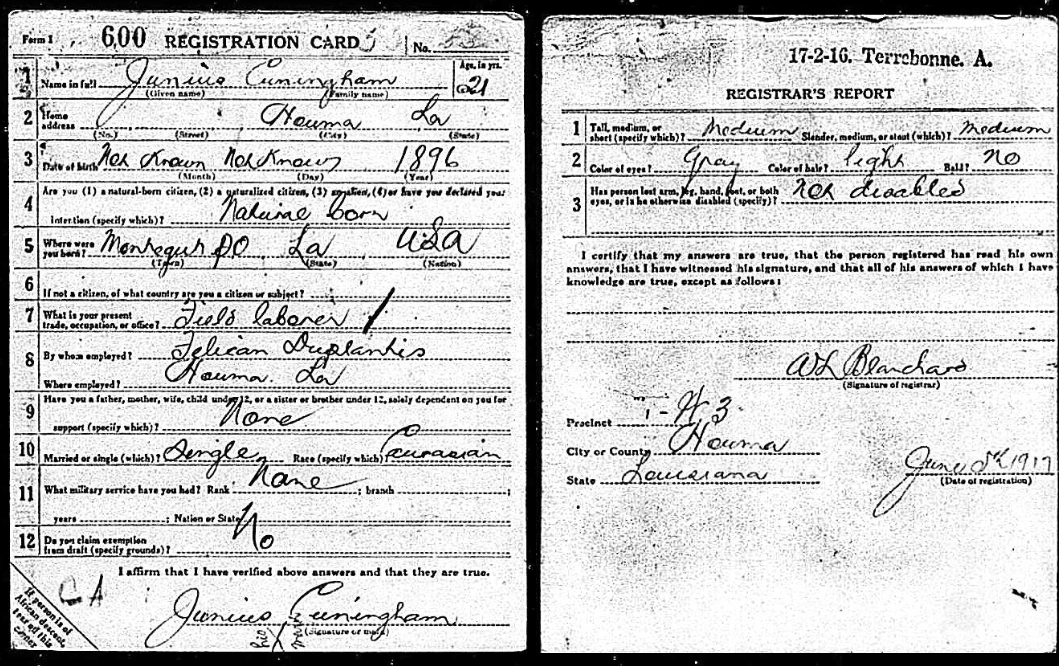 Form 1 600 REGISTRATION CARD No.
1 Name in full Junius Cuningham Age, in yrs. 21
(Given name) (Family name)
2 Home address Houma La
(No.) (Street) (City) (State)
3 Date of birth Not Known Not Known 1896
(Month) (Day) (Year)
4 Are you (1) a natural-born citizen, (2) a naturalized citizen, (3) an alien, (4) or have you declared your
intention (specify which)? Natural born
5 Where were you born? Montegut PO La USA
(Town) (State) (Nation)
6 If not a citizen, of what country are you a citizen or subject?
7 What is your present trade, occupation, or office? Field laborer
8 By whom employed? Felican Duplantis
Where employed? Houma. La
9 Have you a father, mother, wife, child under 12, or a sister or brother under 12, solely dependent on you for
support (specify which)? None
10 Married or single (which)? Single Race (specify which)? Caucasian
11 What military service have you had? Rank None ; branch ;
years ; Nation or State
12 Do you claim exemption from draft (specify grounds)? No
I affirm that I have verified above answers and that they are true.
Junius Cuningham
his mark
(Signature or mark)
If person is of
African descent,
tear off this
corner
17-2-16. Terrebonne. A.
REGISTRAR'S REPORT
1 Tall, medium, or short (specify which)? Medium Slender, medium, or stout (which)? Medium
2 Color of eyes? Gray Color of hair? light Bald? No
3 Has person lost arm, leg, hand, foot, or both eyes, or is he otherwise disabled (specify)? Not disabled
I certify that my answers are true, that the person registered has read his own
answers, that I have witnessed his signature, and that all of his answers of which I have
knowledge are true, except as follows:
W L Blanchard
(Signature of registrar)
Precinct 1 - W 3
City or County Houma
State Louisiana
June 5th 1917
(Date of registration)